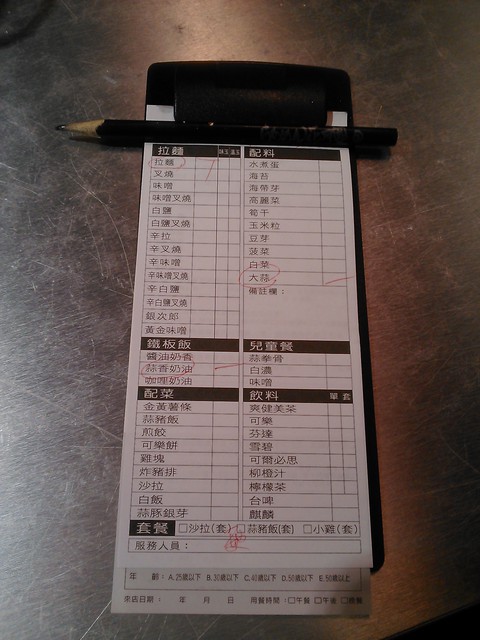 拉麵
拉麵
叉燒
味噌
味噌叉燒
白鹽
白鹽叉燒
辛拉
辛叉燒
辛味噌
辛味噌叉燒
辛白鹽
辛白鹽叉燒
銀次郎
黃金味噌
配料
水煮蛋
海苔
海帶芽
高麗菜
筍干
玉米粒
豆芽
菠菜
白菜
大蒜
備註欄：
鐵板飯
醬油奶香
蒜香奶油
咖哩奶油
兒童餐
蒜拳骨
白濃
味噌
配菜
金黃薯條
蒜豬飯
煎餃
可樂餅
雞塊
炸豬排
沙拉
白飯
蒜豚銀芽
飲料 單 套
爽健美茶
可樂
芬達
雪碧
可爾必思
柳橙汁
檸檬茶
台啤
麒麟
套餐 □沙拉(套) □蒜豬飯(套) □小雞(套)
服務人員：
年 齡：A.25歲以下 B.30歲以下 C.40歲以下 D.50歲以下 E.50歲以上
來店日期： 年 月 日 用餐時間：□午餐 □午後 □晚餐